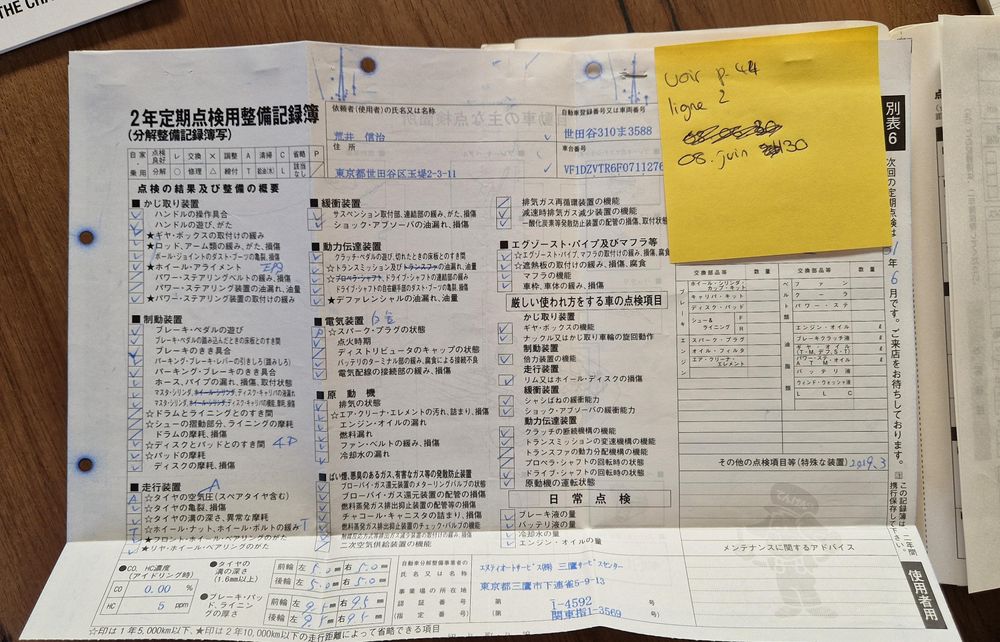 THE CHA
voir p. 44
ligne 2
08. juin 30
2年定期点検用整備記録簿
(分解整備記録簿写)
依頼者(使用者)の氏名又は名称
荒井 信治
自動車登録番号又は車両番号
世田谷310ま3588
住所
東京都世田谷区玉堤2-3-11
車台番号
VF1DZVTR6F0711276
自家乗用 点検良好 レ 交換 × 調整 A 清掃 C 省略 P
分解 ○ 修理 △ 締付 T 給油(水) L 該当なし
点検の結果及び整備の概要
■かじ取り装置
ハンドルの操作具合
ハンドルの遊び、がた
★ギヤ・ボックスの取付けの緩み
★ロッド、アーム類の緩み、がた、損傷
ボール・ジョイントのダスト・ブーツの亀裂、損傷
★ホイール・アライメント
パワー・ステアリングベルトの緩み、損傷
パワー・ステアリング装置の油漏れ、油量
★パワー・ステアリング装置の取付けの緩み
■制動装置
ブレーキ・ペダルの遊び
ブレーキ・ペダルの踏み込んだときの床板とのすき間
ブレーキのきき具合
パーキング・ブレーキ・レバーの引きしろ(踏みしろ)
パーキング・ブレーキのきき具合
ホース、パイプの漏れ、損傷、取付状態
マスタ・シリンダ、ホイール・シリンダ、ディスク・キャリパの液漏れ
マスタ・シリンダ、ホイール・シリンダ、ディスク・キャリパの機能、摩耗、損傷
☆ドラムとライニングとのすき間
☆シューの摺動部分、ライニングの摩耗
ドラムの摩耗、損傷
☆ディスクとパッドとのすき間
☆パッドの摩耗
ディスクの摩耗、損傷
■走行装置
☆タイヤの空気圧(スペアタイヤ含む)
☆タイヤの亀裂、損傷
☆タイヤの溝の深さ、異常な摩耗
☆ホイール・ナット、ホイール・ボルトの緩み
★フロント・ホイール・ベアリングのがた
★リヤ・ホイール・ベアリングのがた
■緩衝装置
サスペンション取付部、連結部の緩み、がた、損傷
ショック・アブソーバの油漏れ、損傷
■動力伝達装置
クラッチ・ペダルの遊び、切れたときの床板とのすき間
☆トランスミッション及びトランスファの油漏れ、油量
☆プロペラ・シャフト、ドライブ・シャフトの連結部の緩み
ドライブ・シャフトの自在継手部のダスト・ブーツの亀裂、損傷
★デファレンシャルの油漏れ、油量
■電気装置
☆スパーク・プラグの状態
点火時期
ディストリビュータのキャップの状態
バッテリのターミナル部の緩み、腐食による接続不良
電気配線の接続部の緩み、損傷
■原動機
排気の状態
☆エア・クリーナ・エレメントの汚れ、詰まり、損傷
エンジン・オイルの漏れ
燃料漏れ
ファン・ベルトの緩み、損傷
冷却水の漏れ
■ばい煙、悪臭のあるガス、有害なガス等の発散防止装置
ブローバイ・ガス還元装置のメターリングバルブの状態
ブローバイ・ガス還元装置の配管の損傷
燃料蒸発ガス排出抑止装置の配管等の損傷
チャコール・キャニスタの詰まり、損傷
燃料蒸発ガス排出抑止装置のチェック・バルブの機能
触媒反応方式等排出ガス減少装置の取付けの緩み、損傷
二次空気供給装置の機能
排気ガス再循環装置の機能
減速時排気ガス減少装置の機能
一酸化炭素等発散防止装置の配管の損傷、取付状態
■エグゾースト・パイプ及びマフラ等
☆エグゾースト・パイプ、マフラの取付けの緩み、損傷、腐食
☆遮熱板の取付けの緩み、損傷、腐食
マフラの機能
車枠、車体の緩み、損傷
厳しい使われ方をする車の点検項目
かじ取り装置
ギヤ・ボックスの機能
ナックル又はかじ取り車輪の旋回動作
制動装置
倍力装置の機能
走行装置
リム又はホイール・ディスクの損傷
緩衝装置
シャシばねの緩衝能力
ショック・アブソーバの緩衝能力
動力伝達装置
クラッチの断続機構の機能
トランスミッションの変速機構の機能
トランスファの動力分配機構の機能
プロペラ・シャフトの回転時の状態
ドライブ・シャフトの回転時の状態
原動機の運転状態
日常点検
ブレーキ液の量
バッテリ液の量
冷却水の量
エンジン・オイルの量
交換部品等 数量 交換部品等 数量
ホイール・シリンダ・カップ・キット
キャリパ・キット
ディスク・パッド
シュー&ライニング F R
スパーク・プラグ
オイル・フィルタ
エア・クリーナ・エレメント
ベルト
ファン
クーラ
パワー・ステ
油脂類
エンジン・オイル ℓ
ブレーキクラッチ液 ℓ
ギヤ・オイル(T・M、デフ、S・T) ℓ
パワー・ステ・オイル ℓ
バッテリ液 ℓ
ウィンド・ウォッシャ液 ℓ
L L C ℓ
その他の点検項目等(特殊な装置)
2019.3
メンテナンスに関するアドバイス
別表6
次回の定期点検は 1年6月です。ご来店をお待ちしております。
この記録簿は、二年間携行保存して下さい。
使用者用
●CO、HC濃度(アイドリング時)
CO 0.00 %
HC 5 ppm
●タイヤの溝の深さ(1.6mm以上)
前輪 左 5.0 右 5.0
後輪 左 5.0 右 5.0
●ブレーキ・パッド、ライニングの厚さ
前輪 左 9.5 右 9.5
後輪 左 9.5 右 9.5
自動車分解整備事業者の氏名又は名称
エヌティオートサービス㈱ 三鷹サービスセンター
事業場の所在地
東京都三鷹市下連雀5-9-13
認証番号 第 1-4592 号
(指定番号) (第 関東指1-3569 号)
☆印は1年5,000km以下、★印は2年10,000km以下の走行距離によって省略できる項目